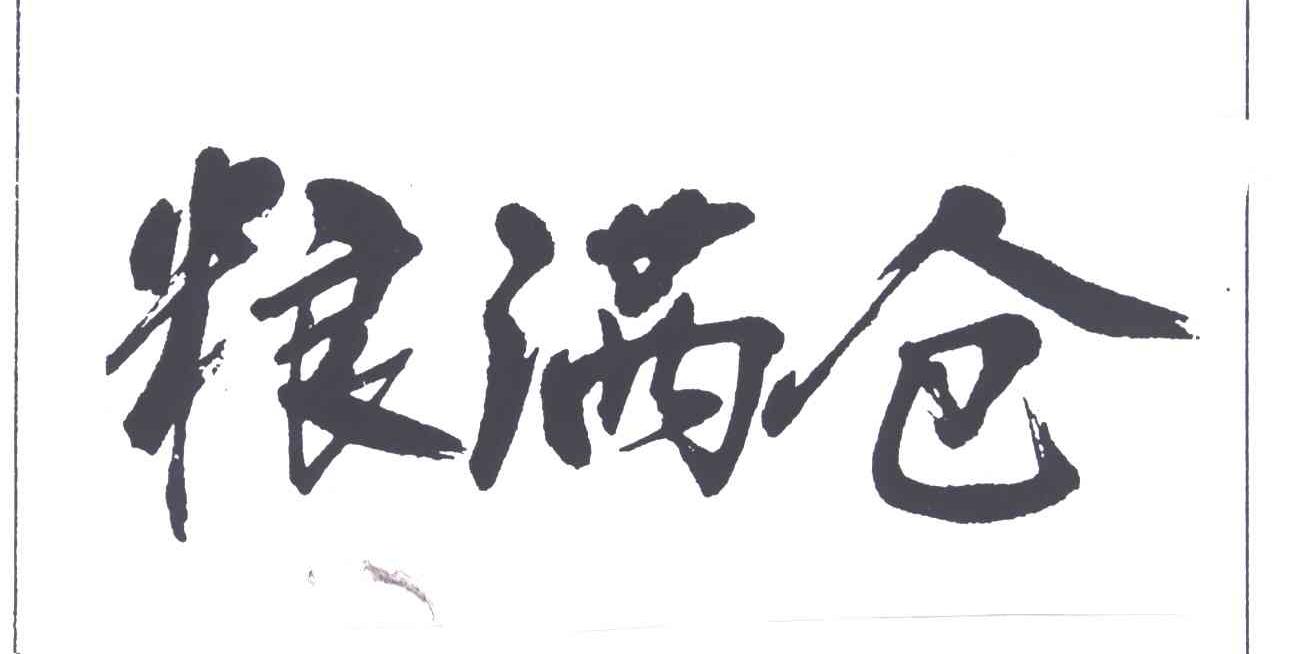 粮满仓